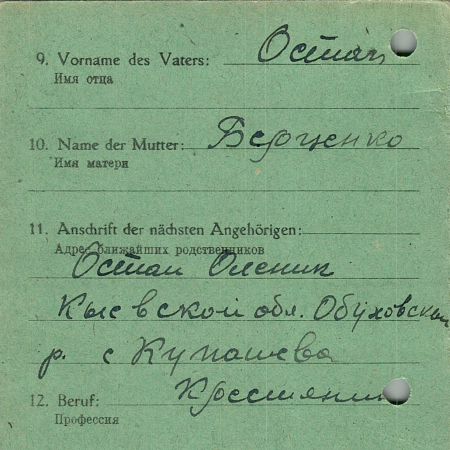 9. Vorname des Vaters: Остап
Имя отца
10. Name der Mutter: Берченко
Имя матери
11. Anschrift der nächsten Angehörigen:
Адрес ближайших родственников
Остап Оленик
Кыевской обл. Обуховской
р. с
12. Beruf: Крестянин
Профессия